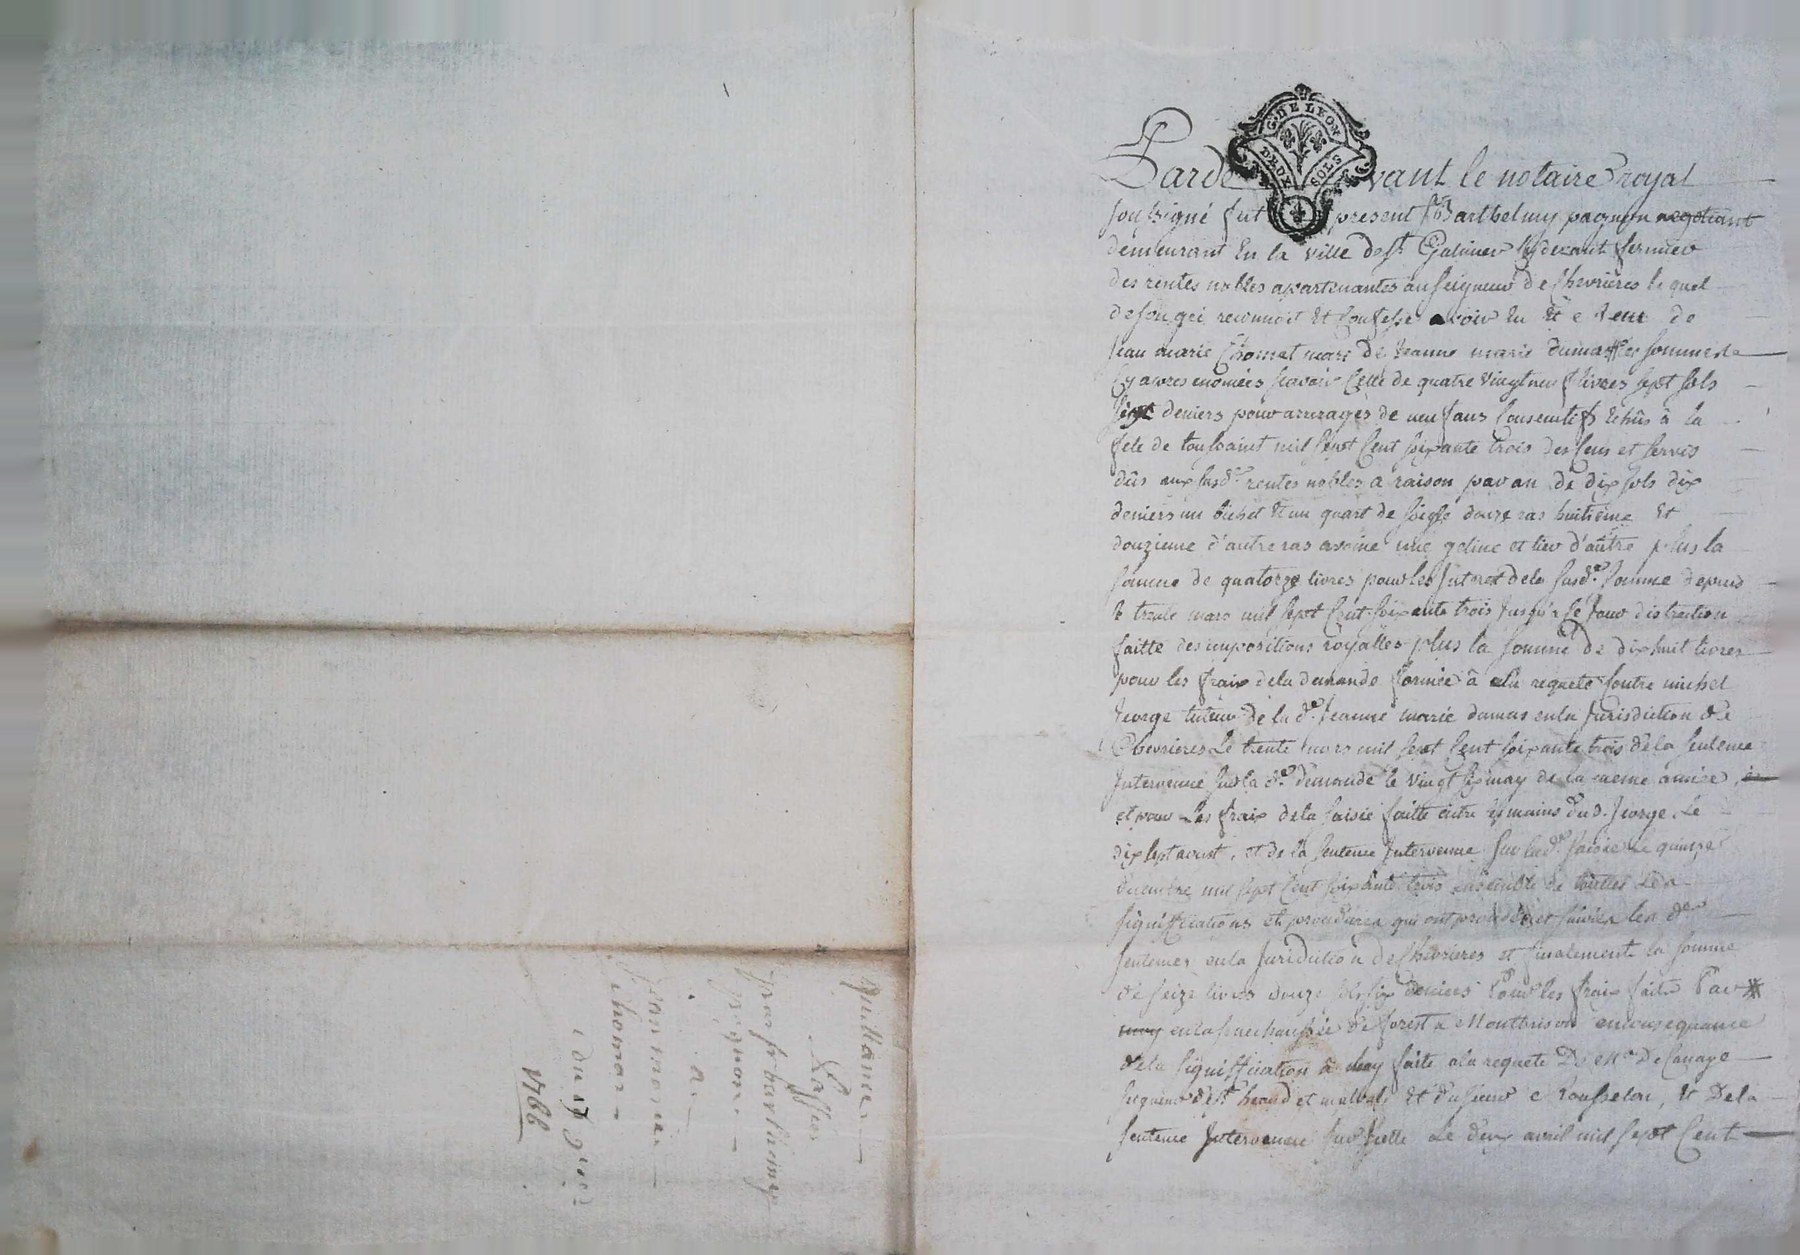 G. DE LYON
DEUX SOLS
Pardevant le notaire royal
soussigné fut present Sr Barthelmy pagnon negotiant
demeurant En la ville de St Galmier Cydevant fermier
des rentes nobles apartenantes au seigneur de Chevrières lequel
de son gré reconnoit Et Confesse avoir Eu Et receu de
Jean marie Chomat mari de Jeanne marie dumas les sommes
Cy apres enoncées scavoir Celle de quatre vingt neuf livres sept sols
sept deniers pour arrerages de neuf ans Consecutifs Echûs à la
fete de toussaint mil sept Cent soixante trois des Cens et servis
dûs aux susd. rentes nobles a raison par an de dix sols dix
deniers un bichet Et un quart de seigle douze ras huitieme Et
douzieme d'autre ras avoine une geline et tier d'autre plus la
somme de quatorze livres pour les Interet de la susde. somme depuis
le trente mars mil sept Cent soixante trois Jusqu'a Ce Jour distraction
faitte des impositions royalles plus la somme de dix huit livres
pour les fraix de la demande formée à sa requete Contre michel
Jeorge tuteur de la de. Jeanne marie dumas en la Jurisdiction de
Chevrieres Le trente mars mil sept Cent soixante trois de la sentence
Intervenue sur la de. demande le vingt six may de la meme année
et pour Les fraix de la saisie faitte entre les mains dud. Jeorge Le
dix sept aoust, et de la sentence Intervenue sur lad. saisie le quinze
decembre mil sept Cent soixante trois ensemble de touttes Les
signiffications et procedures qui ont precédé et suivies les des
sentences en la Juridiction de Chevrieres et finalement la somme
de seize livres douze sols six deniers Pour les fraix faits Par
en la senechaussée de forest a Montbrison en consequence
de la signiffication à luy faite a la requete De Mr De
seigneur de St heand et malval Et du sieur Rousselon, Et De la
sentence Intervenue sur Icelle Le deux avril mil sept Cent
quittance
passée
par sr barthelemy
pagnon
a
jean marie
chomat
du 17
1766